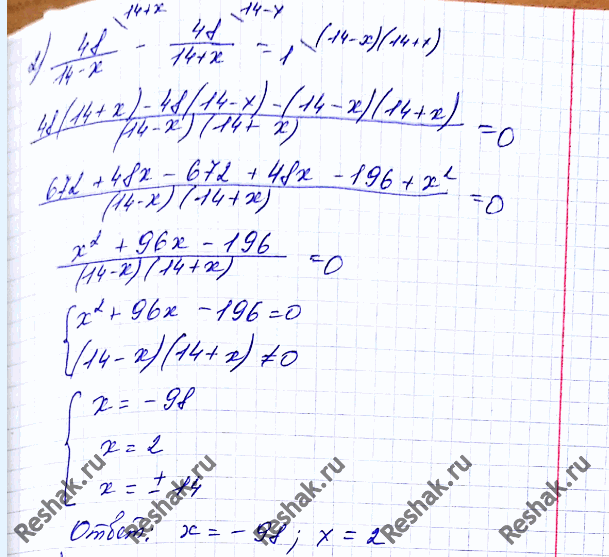 14+x 14-x
2) 48/(14-x) - 48/(14+x) = 1 (14-x)(14+x)
(48(14+x) - 48(14-x) - (14-x)(14+x))/((14-x)(14+x)) = 0
(672 + 48x - 672 + 48x - 196 + x²)/((14-x)(14+x)) = 0
(x² + 96x - 196)/((14-x)(14+x)) = 0
{ x² + 96x - 196 = 0
(14-x)(14+x) ≠ 0
{ x = -98
x = 2
x = ± 14
Ответ: x = -98; x = 2
Reshak.ru Reshak.ru Reshak.ru Reshak.ru Reshak.ru